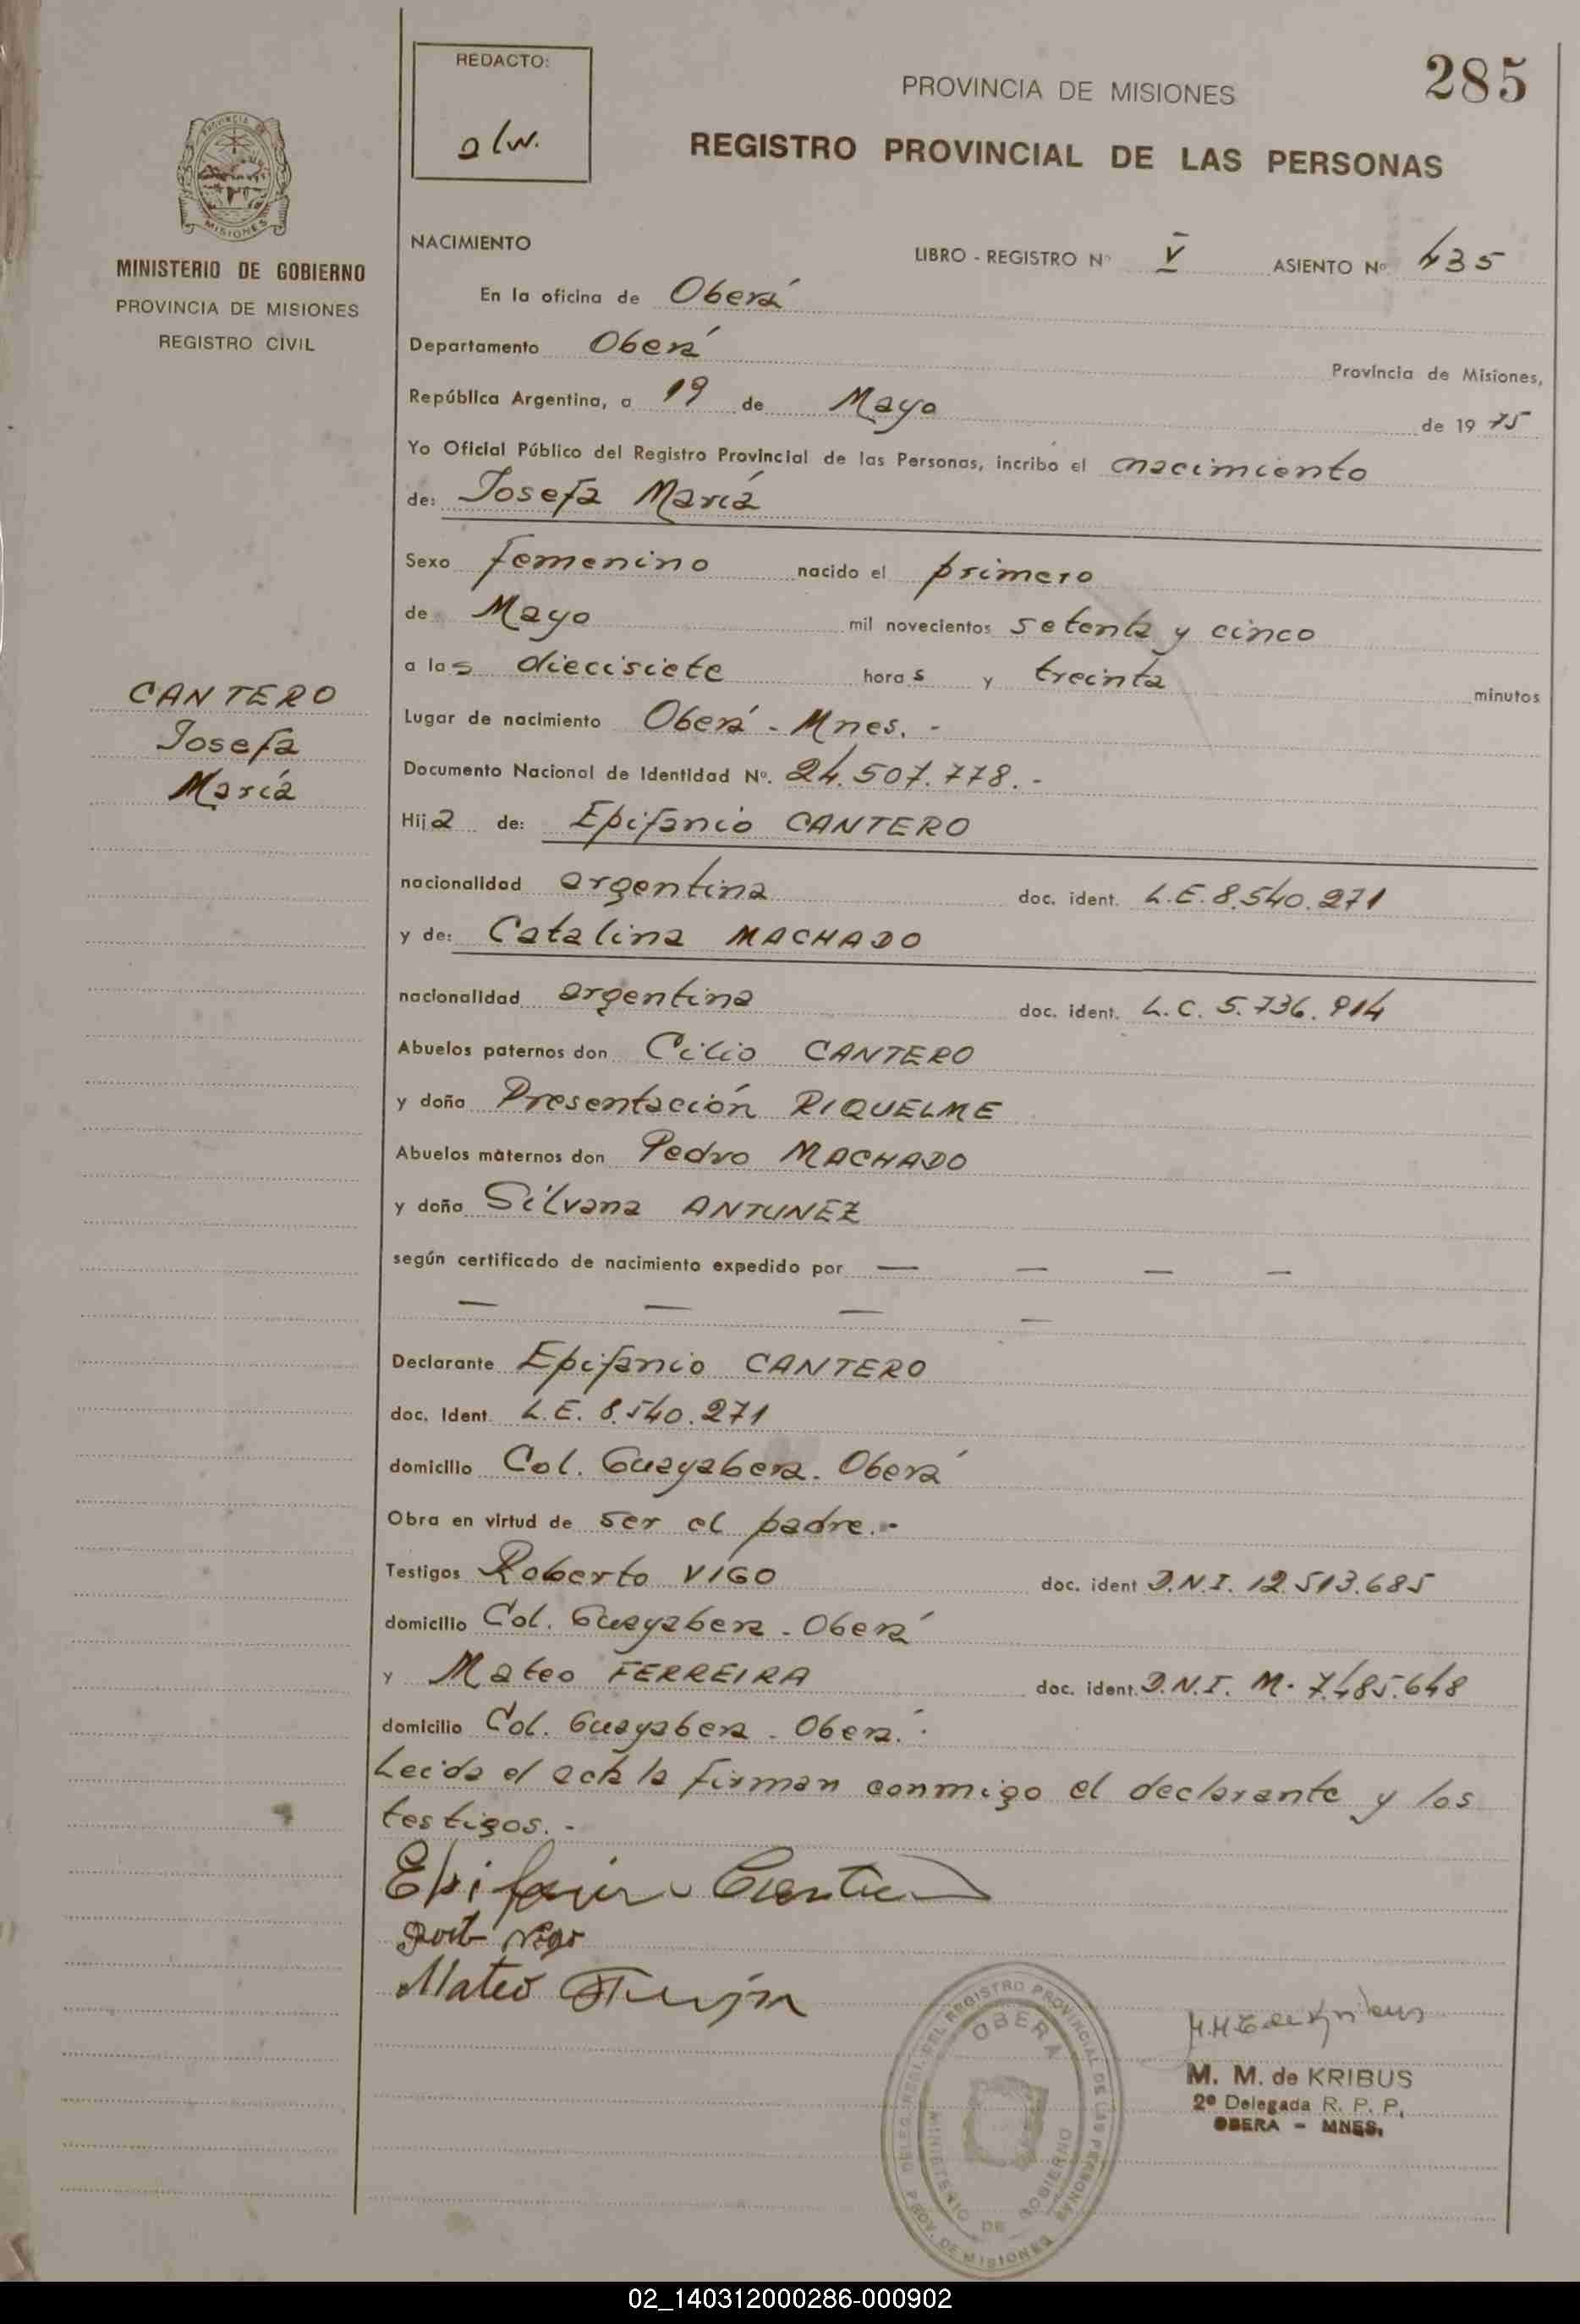 REDACTO:
alw.
PROVINCIA DE MISIONES
285
REGISTRO PROVINCIAL DE LAS PERSONAS
PROVINCIA DE
MISIONES
MINISTERIO DE GOBIERNO
PROVINCIA DE MISIONES
REGISTRO CIVIL
NACIMIENTO
LIBRO - REGISTRO Nº V ASIENTO Nº 435
En la oficina de Oberá
Departamento Oberá
Provincia de Misiones,
República Argentina, a 19 de Mayo de 1975
Yo Oficial Público del Registro Provincial de las Personas, incribo el nacimiento
de: Josefa María
Sexo femenino nacido el primero
de Mayo mil novecientos setenta y cinco
a las diecisiete horas y treinta minutos
Lugar de nacimiento Oberá - Mnes. -
Documento Nacional de Identidad Nº. 24.507.778.-
Hija de: Epifanio CANTERO
nacionalidad argentina doc. ident. L.E. 8.540.271
y de: Catalina MACHADO
nacionalidad argentina doc. ident. L.C. 5.736.914
Abuelos paternos don Cilio CANTERO
y doña Presentación RIQUELME
Abuelos maternos don Pedro MACHADO
y doña Silvana ANTUNEZ
según certificado de nacimiento expedido por — — — —
— — — —
Declarante Epifanio CANTERO
doc. Ident. L.E. 8.540.271
domicilio Col. Guayabera. Oberá
Obra en virtud de ser el padre.-
Testigos Roberto VIGO doc. ident D.N.I. 12.513.685
domicilio Col. Guayabera - Oberá
y Mateo FERREIRA doc. ident. D.N.I. M. 7.485.648
domicilio Col. Guayabera - Oberá.
Leida el acta la firman conmigo el declarante y los
testigos. -
CANTERO
Josefa
María
Epifanio Cantero
Mateo
DELEG. REGL. DEL REGISTRO PROVINCIAL DE LAS PERSONAS
OBERA
MINISTERIO DE GOBIERNO
PROV. DE MISIONES
M. M. de KRIBUS
2º Delegada R. P. P.
OBERA - MNES.
02_140312000286-000902